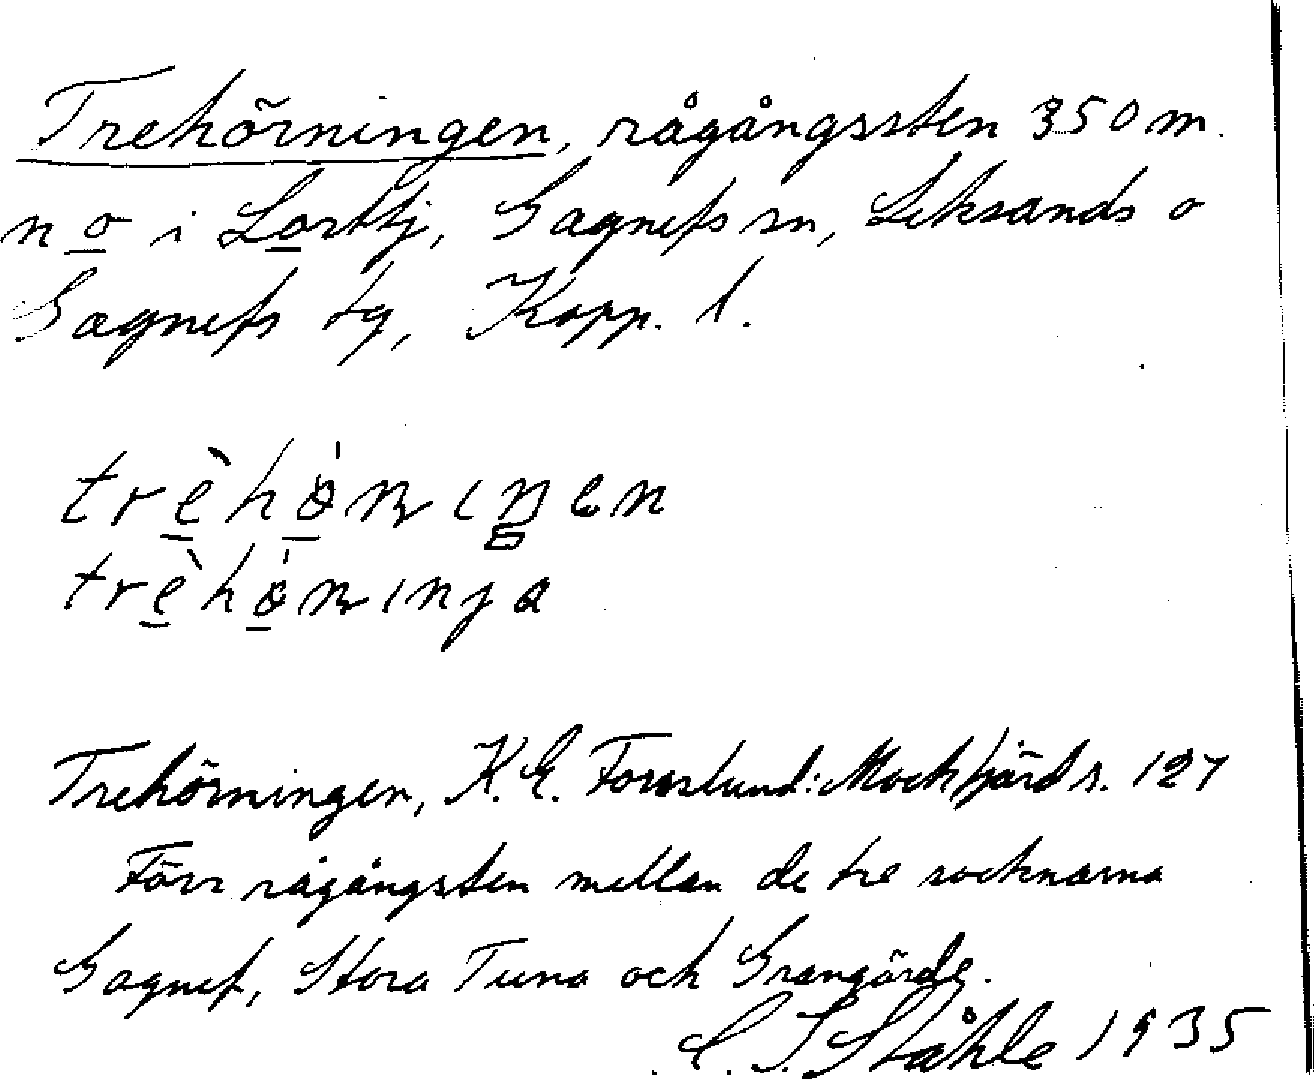 Trehörningen, rågångssten 350 m.
n o i Lorttj, Gagnefs sn, Leksands o
Gagnefs tg, Kopp. l.
trèhö́nıŋen
trèhö́nınja
Trehörningen, K. E. Forsslund: Mockfjärd s. 127
Förr rågångsten mellan de tre socknarna
Gagnef, Stora Tuna och Grangärde.
C. I. Ståhle 1935